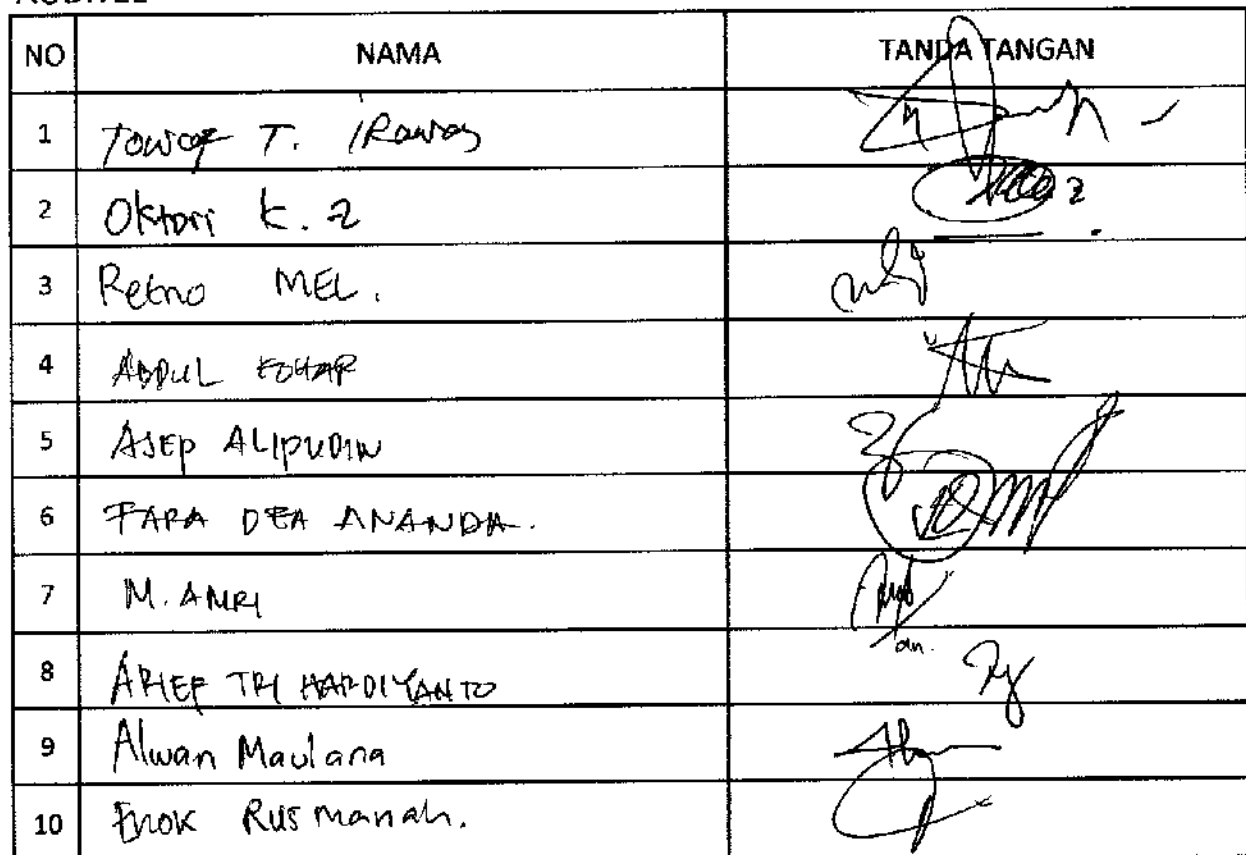 NO NAMA TANDA TANGAN
1 Towaf T. IRawan
2 Oktori K. Z
3 Retno MEL.
4 ABDUL KOHAR
5 ASEP ALIPUDIN
6 FARA DEA ANANDA.
7 M. AMRI
8 ARIEF TRI HARDIYANTO
9 Alwan Maulana
10 Enok Rusmanah.